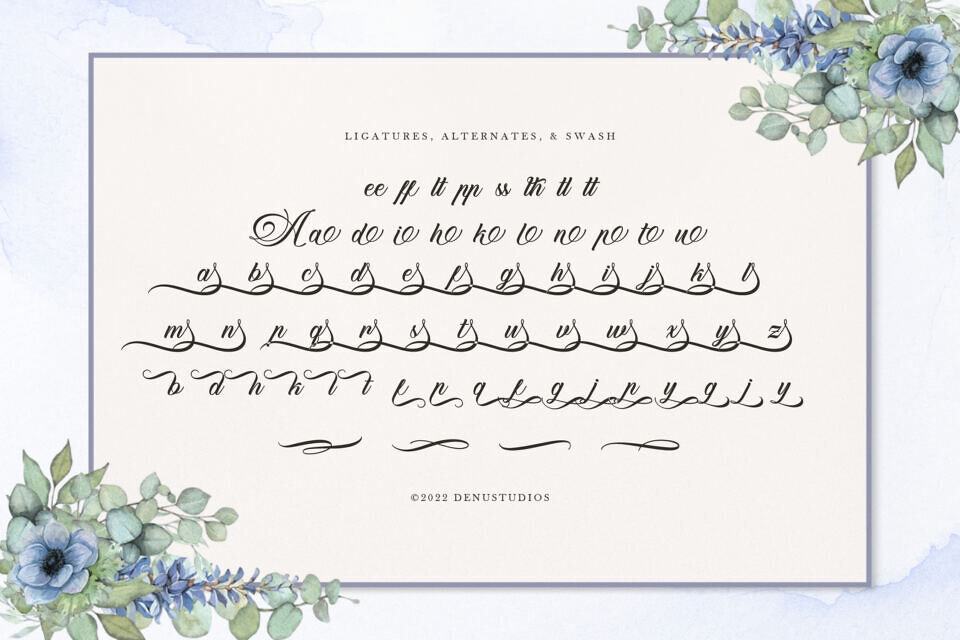 LIGATURES, ALTERNATES, & SWASH
ee ff lt pp ss th tl tt
A ao do io ho ko lo no po to uo
as bs cs ds es fs gs hs is js ks l
ms ns p qs rs ss ts us vs ws xs ys zs
b d h k l t f n q f g j p y g j y
©2022 DENUSTUDIOS